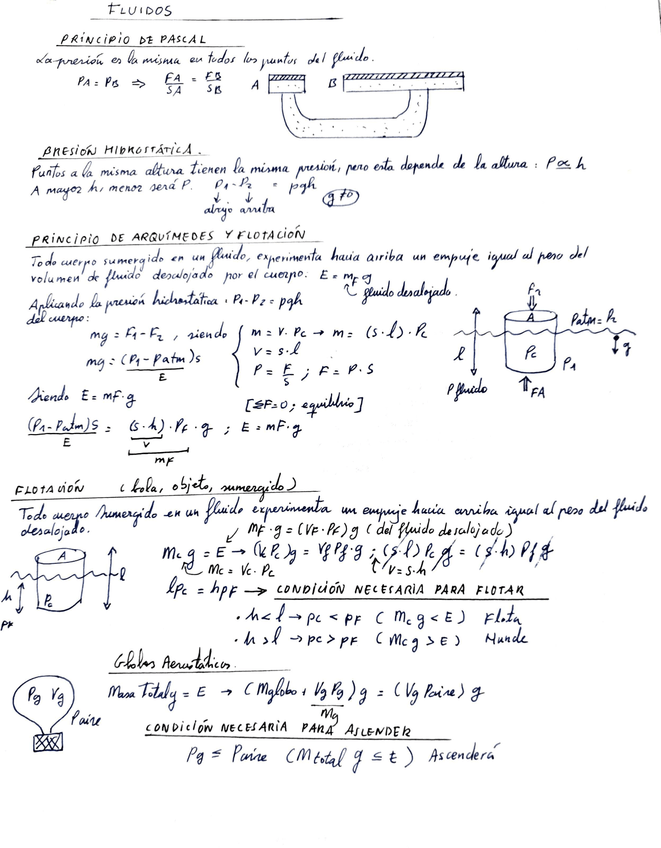 FLUIDOS
PRINCIPIO DE PASCAL
La presión es la misma en todos los puntos del fluido.
PA = PB ⇒ FA/SA = FB/SB A B
PRESIÓN HIDROSTÁTICA.
Puntos a la misma altura tienen la misma presión, pero esta depende de la altura: P ∝ h
A mayor h, menor será P. P1 - P2 = ρgh
g ≠ 0
abajo arriba
PRINCIPIO DE ARQUÍMEDES Y FLOTACIÓN
Todo cuerpo sumergido en un fluido, experimenta hacia arriba un empuje igual al peso del
volumen de fluido desalojado por el cuerpo. E = mF g
fluido desalojado.
Aplicando la presión hidrostática: P1 - P2 = ρgh
del cuerpo:
mg = F1 - F2, siendo
m = V · Pc → m = (s · l) · Pc
mg = (P1 - Patm)s
E
V = s · l
P = F/S ; F = P · S
F2
A
Patm = P2
l
Pc
P1
g
P fluido
FA
Siendo E = mF · g
[ΣF=0; equilibrio]
(P1 - Patm)S/E = (s · h) · PF · g ; E = mF · g
V
mF
FLOTACIÓN (bola, objeto, sumergido)
Todo cuerpo sumergido en un fluido experimenta un empuje hacia arriba igual al peso del fluido
desalojado.
mF · g = (VF · PF) g (del fluido desalojado)
Mc g = E → (Vc Pc) g = Vf Pf · g ; (s · l) Pc g = (s · h) Pf g
Mc = Vc · Pc
V = s · h
A
l
h
Pc
PF
lPc = hPF → CONDICIÓN NECESARIA PARA FLOTAR
· h < l → ρc < ρF (Mc g < E) Flota
· h > l → ρc > ρF (Mc g > E) Hunde
Globos Aerostáticos.
Masa Total g = E → (Mglobo + Vg Pg) g = (Vg Paire) g
Mg
Pg Vg
Paire
CONDICIÓN NECESARIA PARA ASCENDER
Pg ≤ Paire (Mtotal g ≤ E) Ascenderá